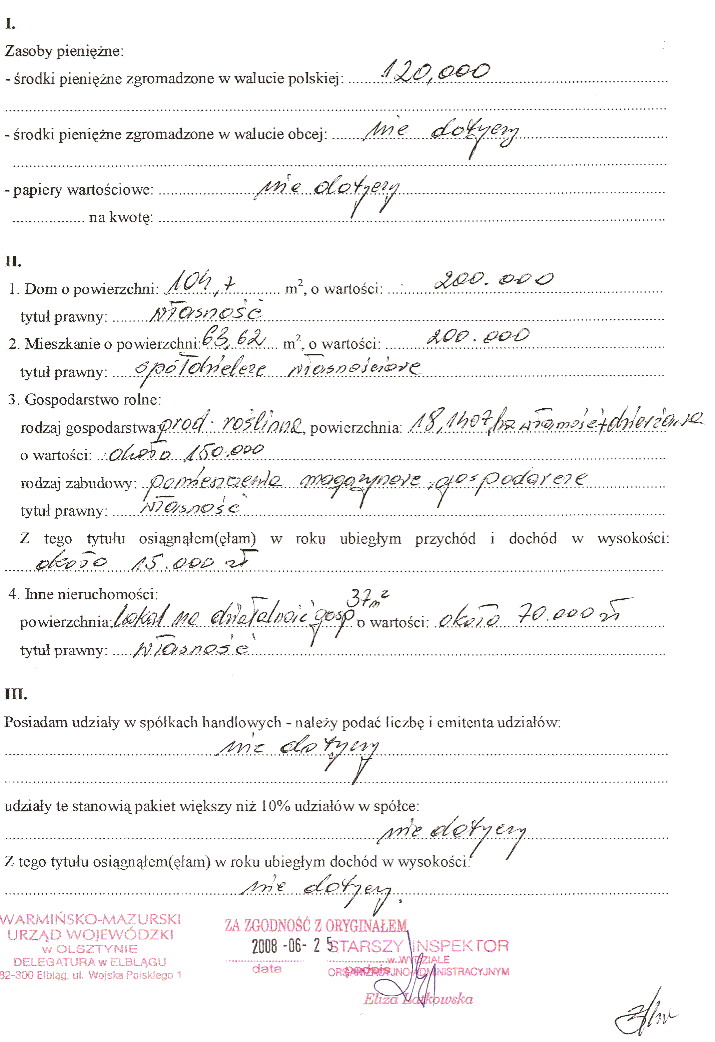 I.
Zasoby pieniężne:
- środki pieniężne zgromadzone w walucie polskiej: 120,000
- środki pieniężne zgromadzone w walucie obcej: nie dotyczy
- papiery wartościowe: nie dotyczy
na kwotę:
II.
1. Dom o powierzchni: 104,7 m², o wartości: 200.000
tytuł prawny: własność
2. Mieszkanie o powierzchni: 63,62 m², o wartości: 200.000
tytuł prawny: spółdzielcze własnościowe
3. Gospodarstwo rolne:
rodzaj gospodarstwa: prod. roślinna, powierzchnia: 18,1407 ha własność+dzierżawa
o wartości: około 150.000
rodzaj zabudowy: pomieszczenia magazynowe, gospodarcze
tytuł prawny: własność
Z tego tytułu osiągnąłem(ęłam) w roku ubiegłym przychód i dochód w wysokości:
około 15.000 zł
4. Inne nieruchomości:
37m²
powierzchnia: Lokal na działalność gosp o wartości: około 70.000 zł
tytuł prawny: własność
III.
Posiadam udziały w spółkach handlowych - należy podać liczbę i emitenta udziałów:
nie dotyczy
udziały te stanowią pakiet większy niż 10% udziałów w spółce:
nie dotyczy
Z tego tytułu osiągnąłem(ęłam) w roku ubiegłym dochód w wysokości:
nie dotyczy.
WARMIŃSKO-MAZURSKI
URZĄD WOJEWÓDZKI
w OLSZTYNIE
DELEGATURA w ELBLĄGU
82-300 Elbląg, ul. Wojska Polskiego 1
ZA ZGODNOŚĆ Z ORYGINAŁEM
2008 -06- 2 5
data podpis
STARSZY INSPEKTOR
w WYDZIALE
ORGANIZACYJNO-ADMINISTRACYJNYM
Eliza